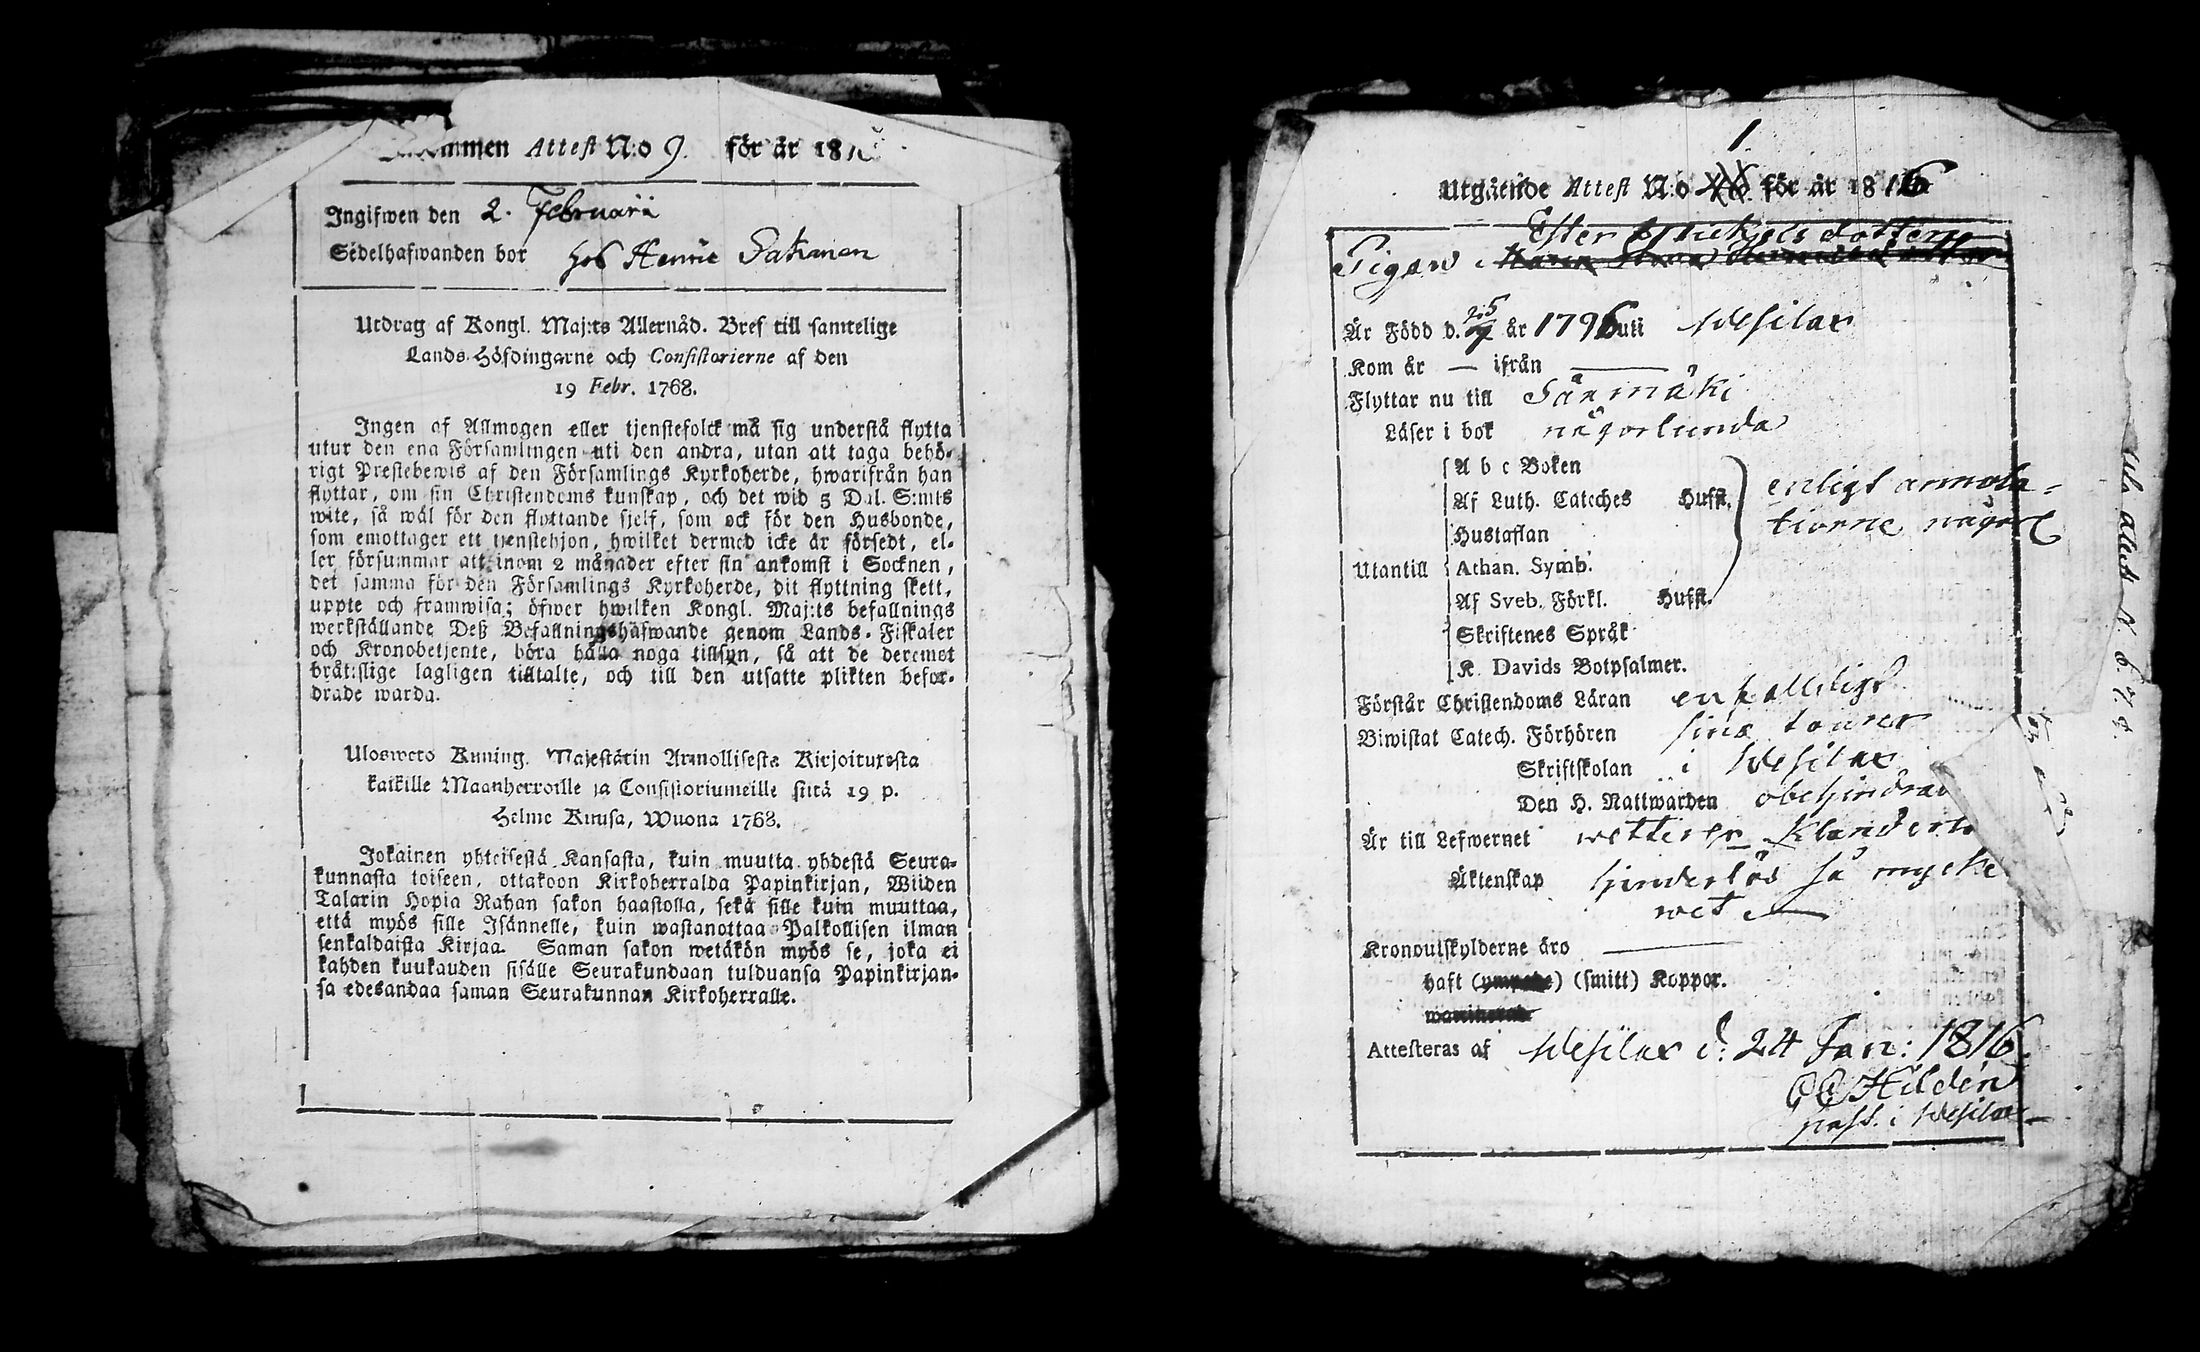 Inkommen Attest N:o 9. för år 181
Ingifwen den 2. Februarii
Sedelhafwanden bor hos Henric
Utdrag af Kongl. Maj:ts Allernåd. Bref till samtelige
Lands-Höfdingarne och Consistorierne af den
19 Febr. 1768.
Ingen af Allmogen eller tjenstefolck må sig understå flytta
utur den ena Församlingen uti den andra, utan att taga behö-
rigt Prestebewis af den Församlings Kyrkoherde, hwarifrån han
flyttar, om sin Christendoms kunskap, och det wid 5 Dal. S:mts
wite, så wäl för den flyttande sjelf, som ock för den Husbonde,
som emottager ett tjenstehjon, hwilket dermed icke är försedt, el-
ler försummar att inom 2 månader efter sin ankomst i Socknen,
det samma för den Församlings Kyrkoherde, dit flyttning skett,
uppte och framwisa; öfwer hwilken Kongl. Maj:ts befallnings
werkställande Deß Befallningshafwande genom Lands-Fiskaler
och Kronobetjente, böra hålla noga tillsyn, så att de deremot
bråtslige lagligen tilltalte, och till den utsatte plikten befor-
drade warda.
Ulosweto Kuning. Majestätin Armollisesta Kirjoituxesta
kaikille Maanherroille ja Consistoriumeille siitä 19 p.
Helme Kuusa, Wuona 1768.
Jokainen yhteisestä Kansasta, kuin muutta yhdestä Seura-
kunnasta toiseen, ottakoon Kirkoherralda Papinkirjan, Wiiden
Talarin Hopia Rahan sakon haastolla, sekä sille kuin muuttaa,
että myös sille Isännelle, kuin wastanottaa Palkollisen ilman
senkaldaista Kirjaa. Saman sakon wetäkön myös se, joka ei
kahden kuukauden sisälle Seurakundaan tulduansa Papinkirjan-
sa edesandaa saman Seurakunnan Kirkoherralle.
1.
Utgående Attest N:o för år 1816
Ester Michelsdotter
Pigan
Är Född d. 25 år 1796 uti Wesilax
Kom år — ifrån —
Flyttar nu till Säxmäki
Läser i bok någorlunda
A b c Boken
Af Luth. Cateches Hufst. enligt annota-
Hustaflan tionne någorl
Utantill Athan. Symb.
Af Sveb. Förkl. Hufst.
Skriftenes Språk
K. Davids Botpsalmer.
Förstår Christendoms Läran enfalligt
Biwistat Catech. Förhören sina tourer
Skriftskolan i Wesilax
Den H. Nattwarden obehindrad
Är till Lefwernet wetterl:n
Äktenskap hinderlös så mycke
wet
Kronoutskylderne äro —
haft (smitt) Koppor.
Attesteras af Wesilax d: 24 Jan: 1816.
Hildén
past. i Wesilax